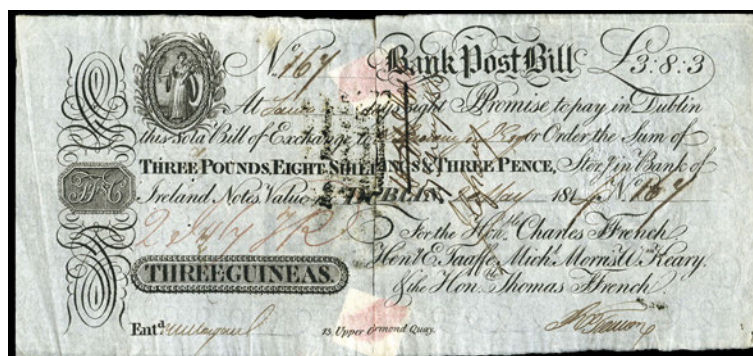 No. 767 Bank Post Bill £3:8:3
At days sight I Promise to pay in Dublin
this Sola Bill of Exchange to or Order the Sum of
THREE POUNDS, EIGHT SHILLINGS & THREE PENCE, Sterg. in Bank of
Ireland Notes, Value DUBLIN, May 181 No. 767
For the Honble. Charles Ffrench
2 July
Henry E. Taaffe, Michl. Morris, Wm. Keary,
THREE GUINEAS.
& the Honble. Thomas Ffrench
Entd. 15, Upper Ormond Quay.